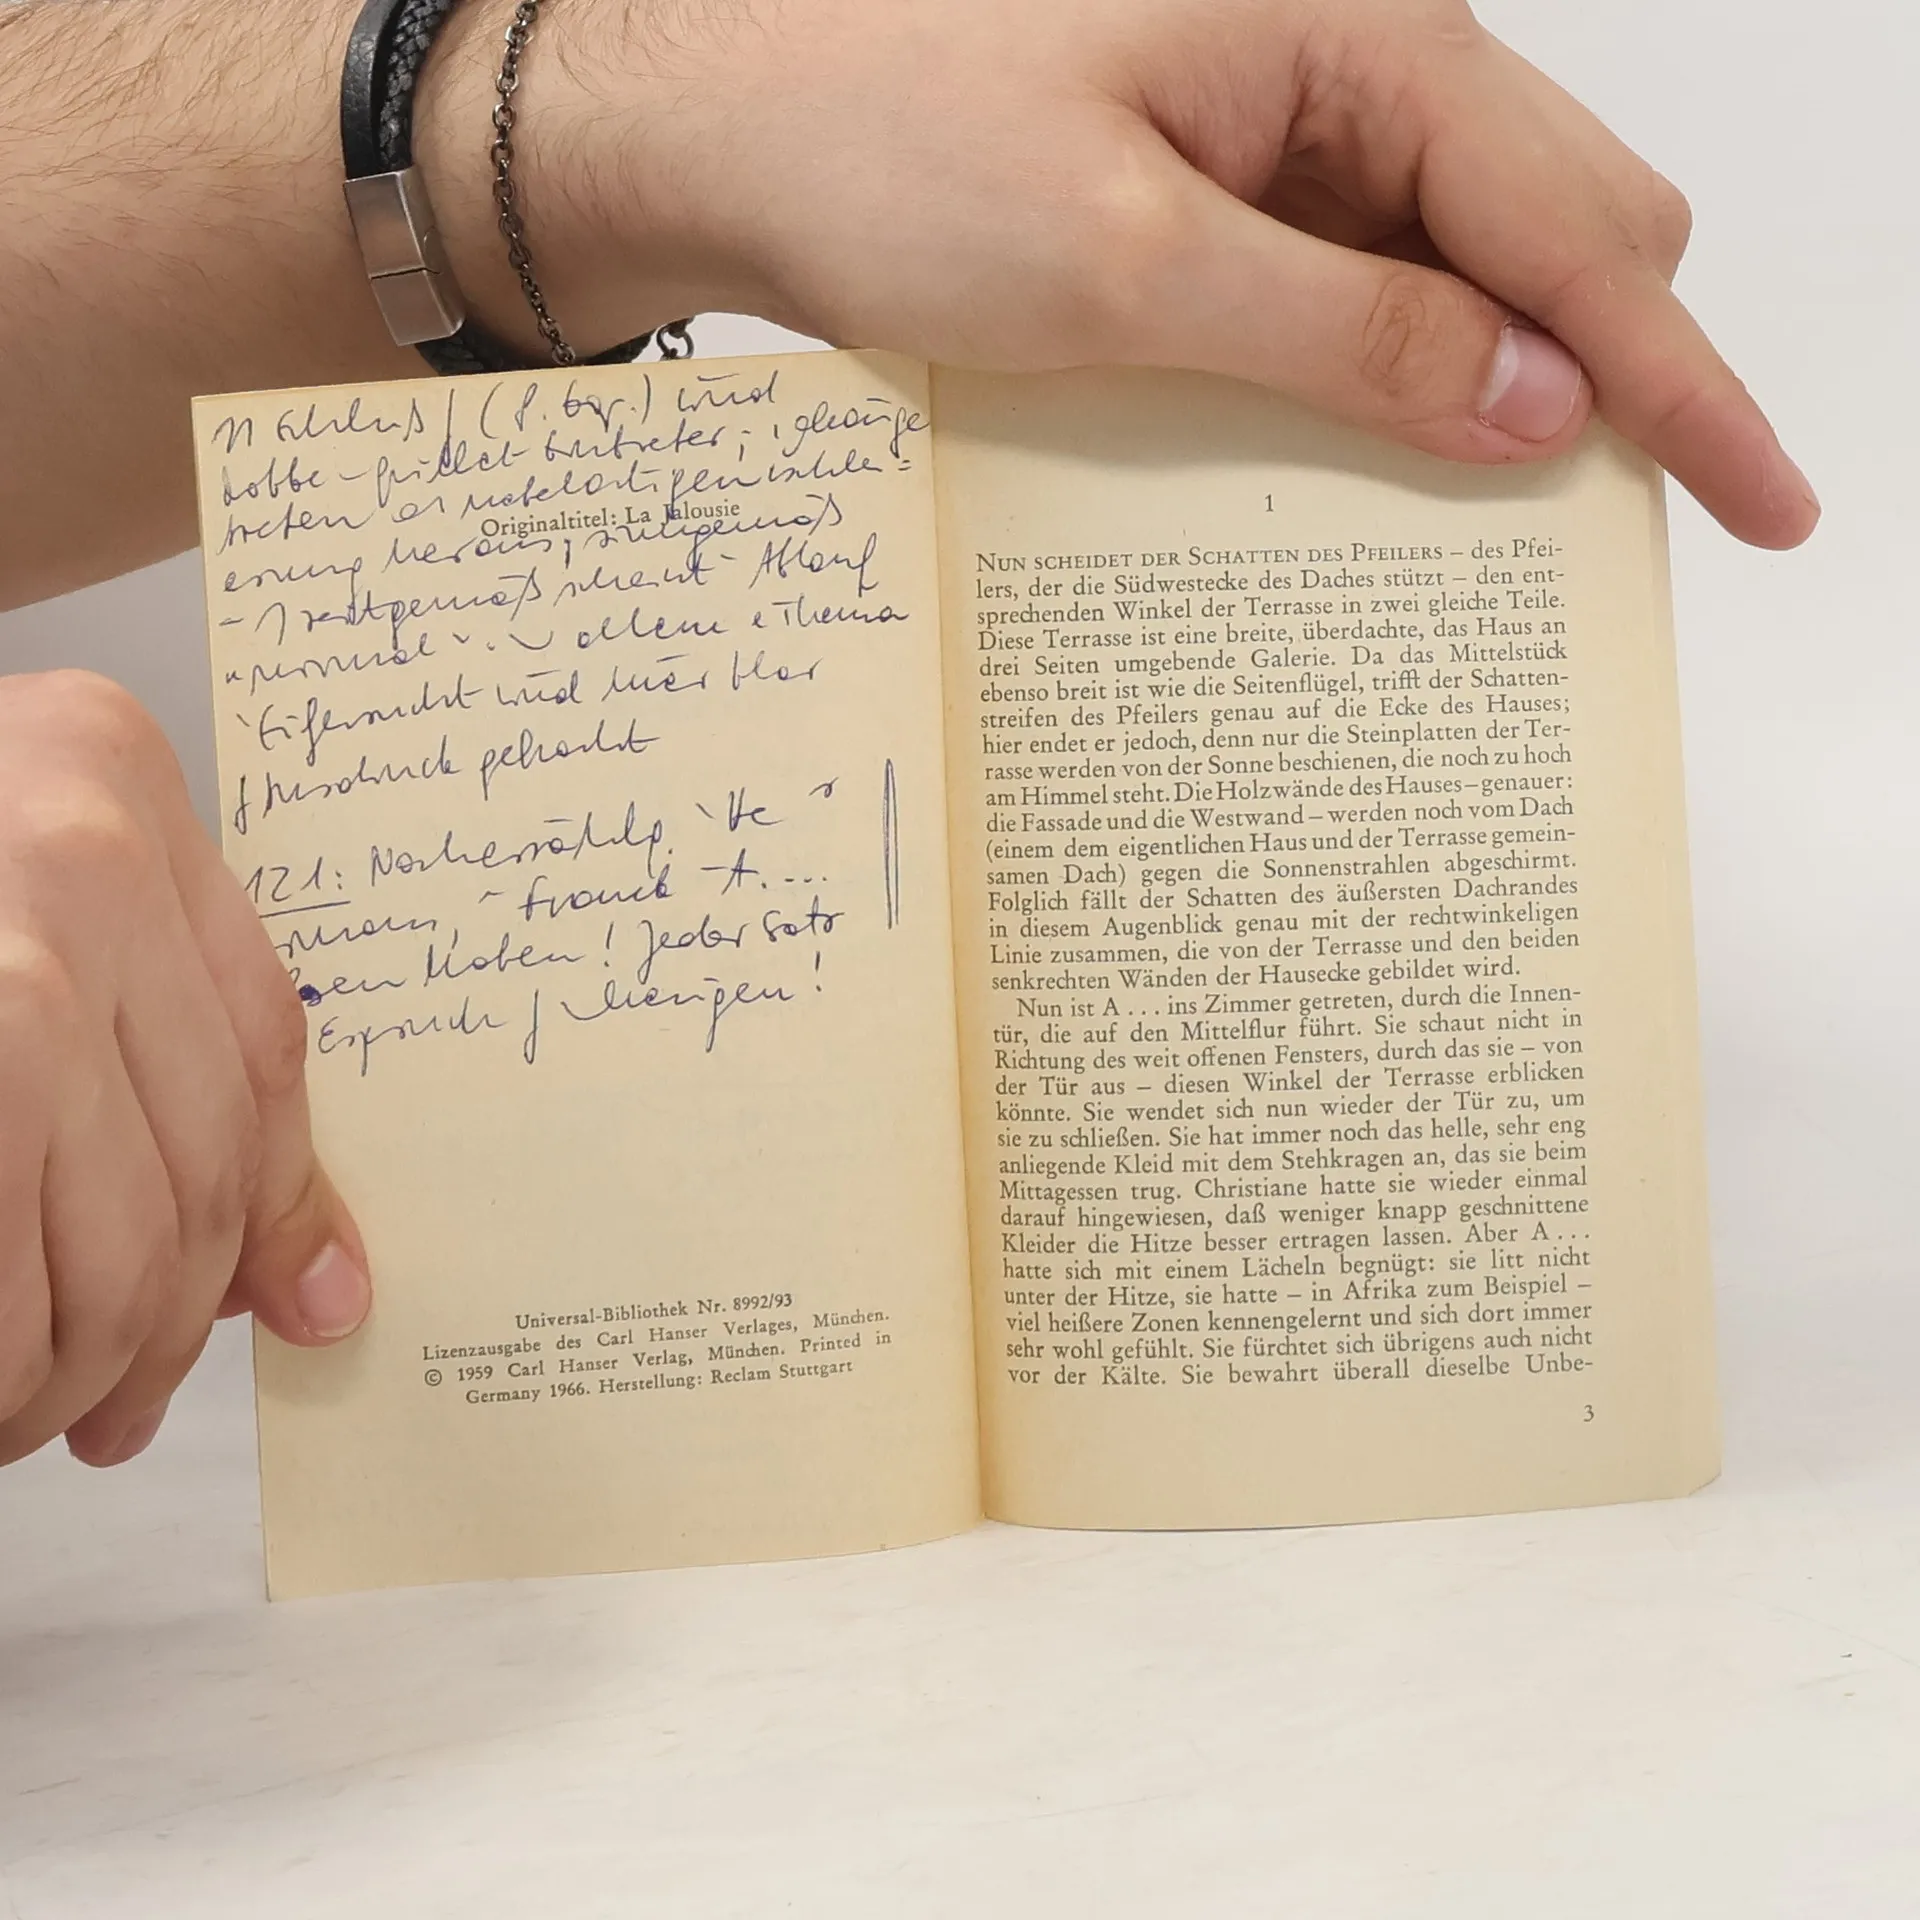 (S. bgr.) und
Originaltitel: La Jalousie
heraus; sinngemäß
scheint Ablauf
Thema
Eifersucht wird hier klar
Ausdruck gebracht
121: Nacherzählg.
Franck A. ...
haben! Jeder Satz
!
Universal-Bibliothek Nr. 8992/93
Lizenzausgabe des Carl Hanser Verlages, München.
© 1959 Carl Hanser Verlag, München. Printed in
Germany 1966. Herstellung: Reclam Stuttgart
1
NUN SCHEIDET DER SCHATTEN DES PFEILERS – des Pfei-
lers, der die Südwestecke des Daches stützt – den ent-
sprechenden Winkel der Terrasse in zwei gleiche Teile.
Diese Terrasse ist eine breite, überdachte, das Haus an
drei Seiten umgebende Galerie. Da das Mittelstück
ebenso breit ist wie die Seitenflügel, trifft der Schatten-
streifen des Pfeilers genau auf die Ecke des Hauses;
hier endet er jedoch, denn nur die Steinplatten der Ter-
rasse werden von der Sonne beschienen, die noch zu hoch
am Himmel steht. Die Holzwände des Hauses – genauer:
die Fassade und die Westwand – werden noch vom Dach
(einem dem eigentlichen Haus und der Terrasse gemein-
samen Dach) gegen die Sonnenstrahlen abgeschirmt.
Folglich fällt der Schatten des äußersten Dachrandes
in diesem Augenblick genau mit der rechtwinkeligen
Linie zusammen, die von der Terrasse und den beiden
senkrechten Wänden der Hausecke gebildet wird.
Nun ist A . . . ins Zimmer getreten, durch die Innen-
tür, die auf den Mittelflur führt. Sie schaut nicht in
Richtung des weit offenen Fensters, durch das sie – von
der Tür aus – diesen Winkel der Terrasse erblicken
könnte. Sie wendet sich nun wieder der Tür zu, um
sie zu schließen. Sie hat immer noch das helle, sehr eng
anliegende Kleid mit dem Stehkragen an, das sie beim
Mittagessen trug. Christiane hatte sie wieder einmal
darauf hingewiesen, daß weniger knapp geschnittene
Kleider die Hitze besser ertragen lassen. Aber A . . .
hatte sich mit einem Lächeln begnügt: sie litt nicht
unter der Hitze, sie hatte – in Afrika zum Beispiel –
viel heißere Zonen kennengelernt und sich dort immer
sehr wohl gefühlt. Sie fürchtet sich übrigens auch nicht
vor der Kälte. Sie bewahrt überall dieselbe Unbe-
3